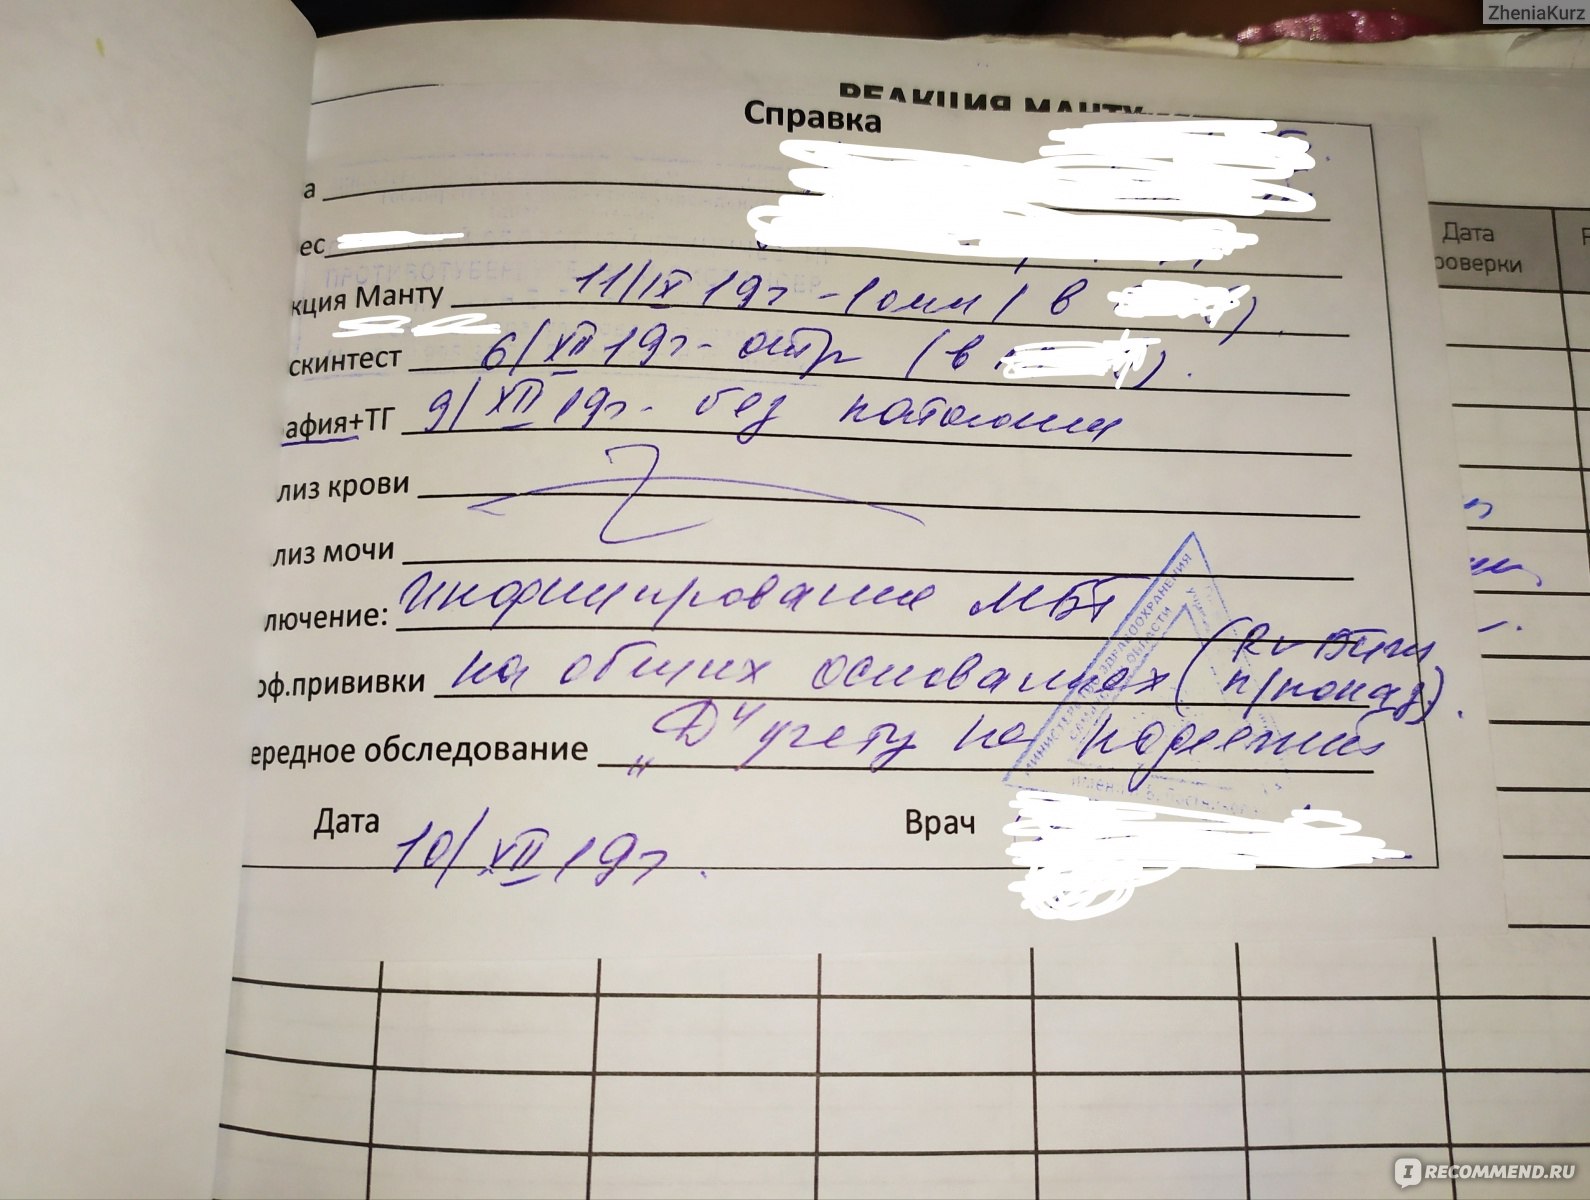 ZheniaKurz
РЕАКЦИЯ МАНТУ
Справка
а
ес
Дата
роверки
кция Манту 11/IX 19г - ( мм ) в
скинтест 6/XII 19г - отр (в ).
афия+ТГ 9/XII 19г - без патологии
лиз крови
лиз мочи
лючение: Инфицирование МБТ
оф.прививки на общих основаниях (R п/показ).
ередное обследование "Д" учету не подлежит
МИНИСТЕРСТВО ЗДРАВООХРАНЕНИЯ
ОБЛАСТИ
Дата 10/XII 19г. Врач
IRECOMMEND.RU